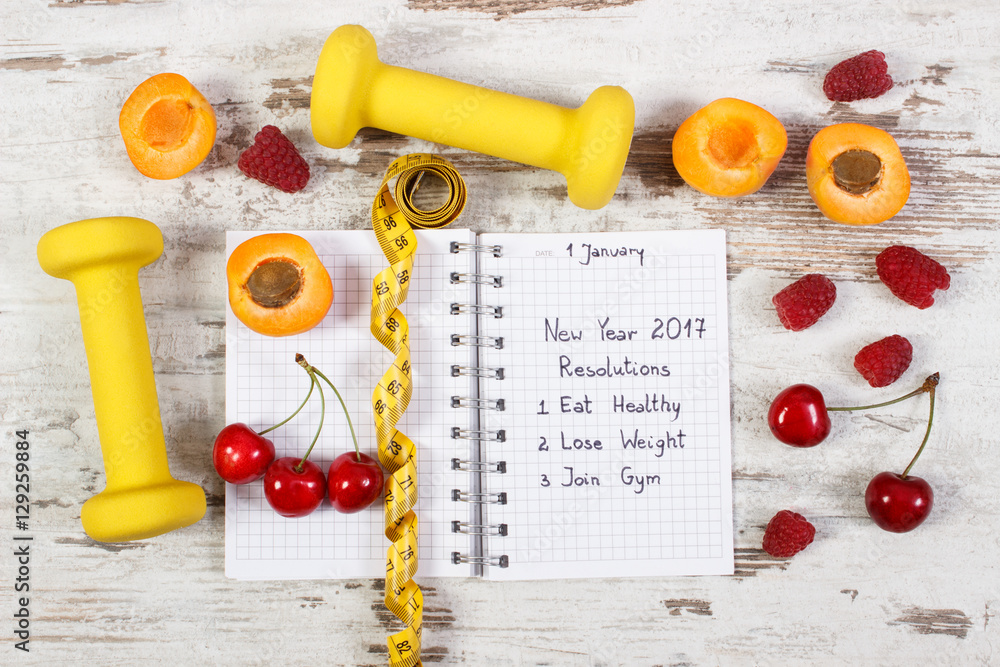 DATE: 1 January
New Year 2017
Resolutions
1 Eat Healthy
2 Lose Weight
3 Join Gym
Adobe Stock | #129259884